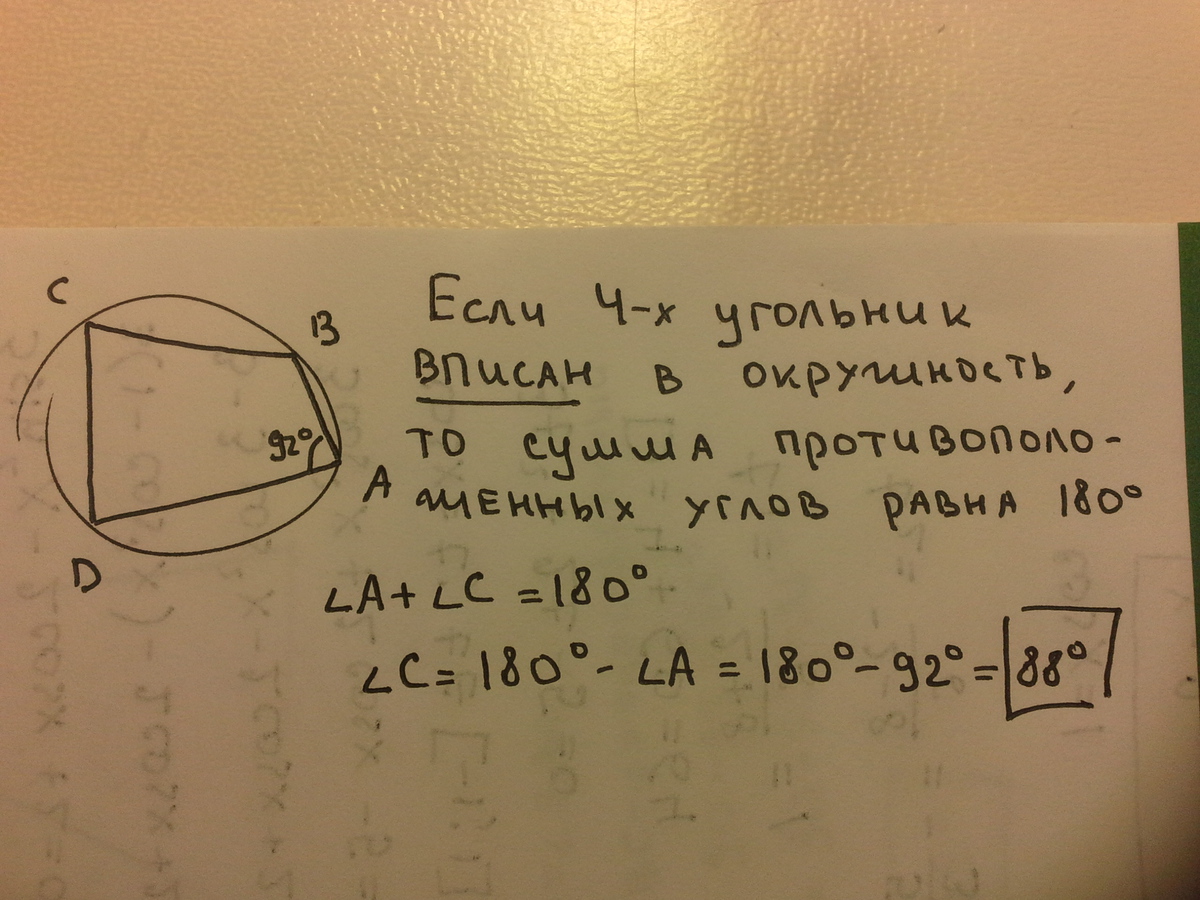 C
B
92°
A
D
Если 4-х угольник
вписан в окружность,
то сумма противополо-
женных углов равна 180°
∠A + ∠C = 180°
∠C = 180° - ∠A = 180° - 92° = 88°